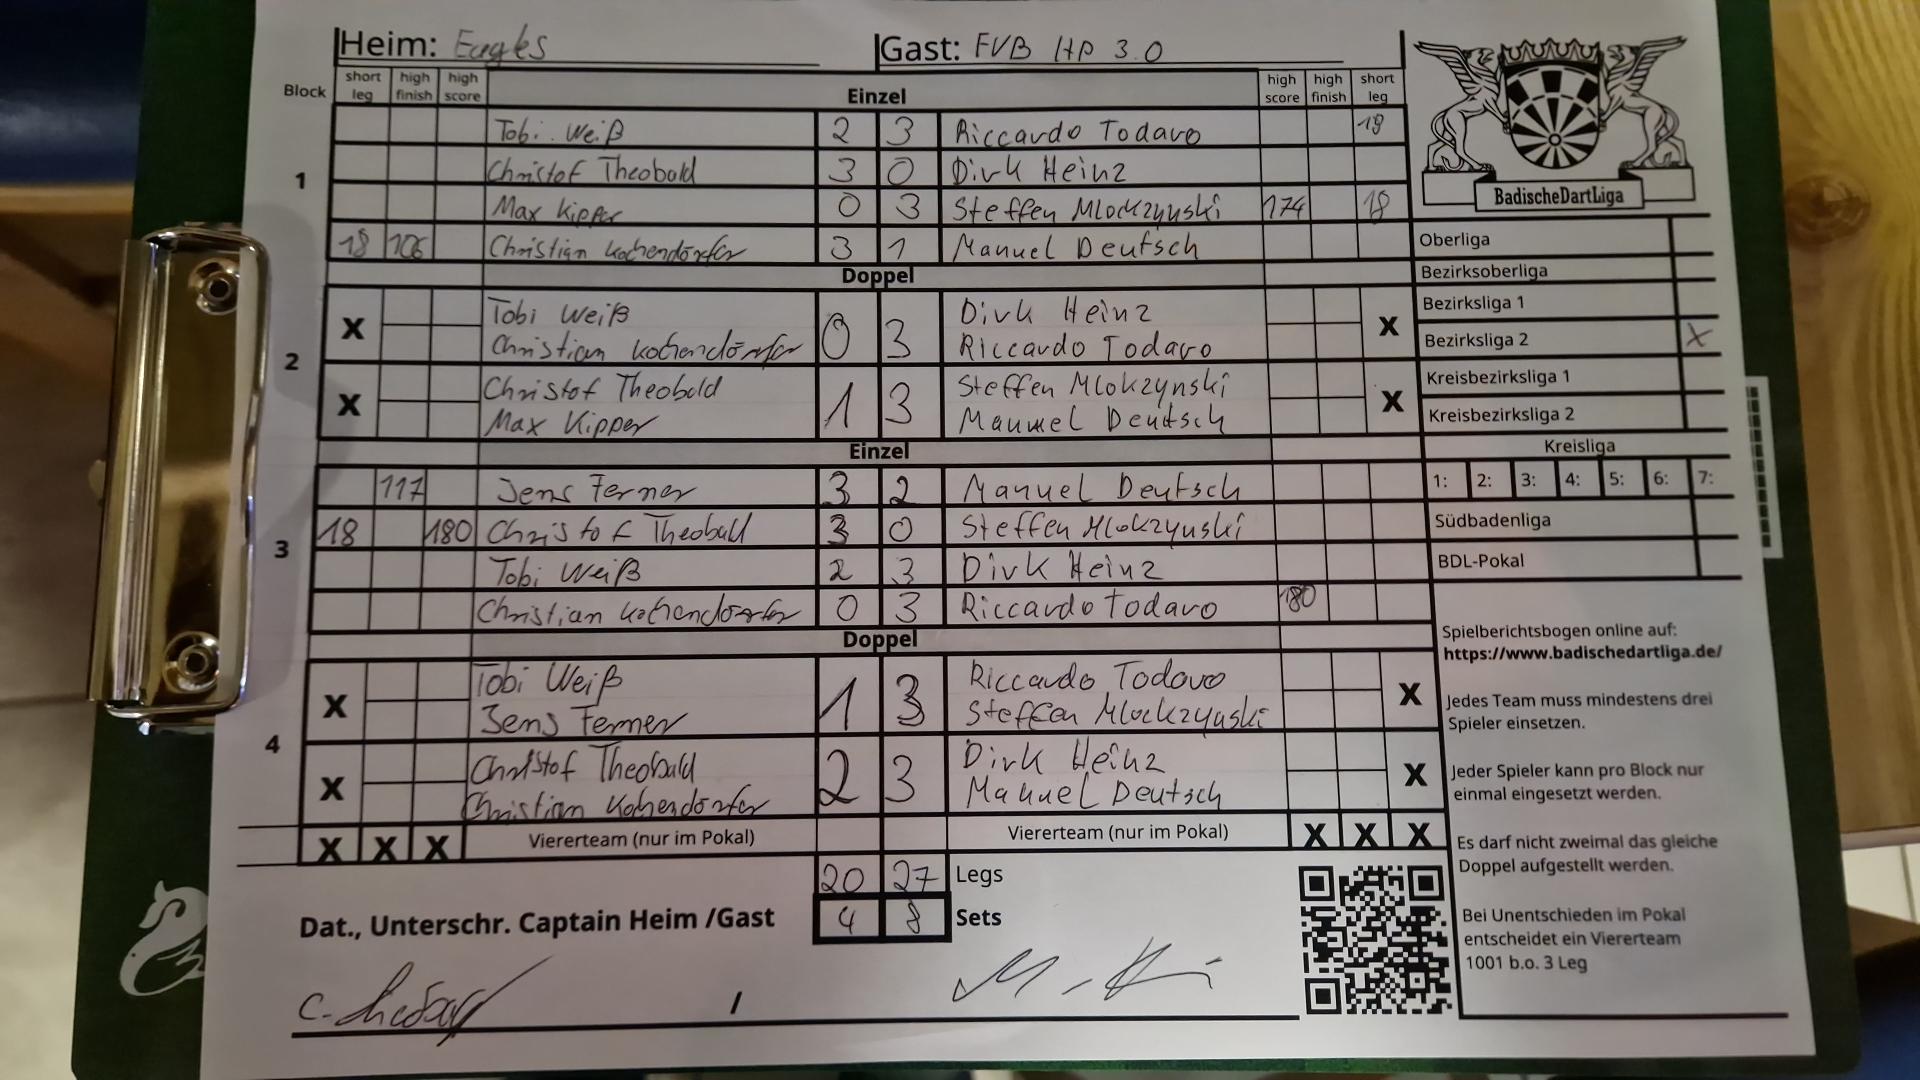 Heim: Eagles Gast: FVB HP 3.0
Block short leg high finish high score Einzel high score high finish short leg
1
Tobi Weiß 2 3 Riccardo Todaro 19
Christof Theobald 3 0 Dirk Heinz
Max Kipper 0 3 Steffen Mlockzynski 174 18
18 106 Christian Kochendörfer 3 1 Manuel Deutsch
Doppel
2
X Tobi Weiß 0 3 Dirk Heinz X
Christian Kochendörfer Riccardo Todaro
X Christof Theobald 1 3 Steffen Mlokzynski X
Max Kipper Manuel Deutsch
Einzel
3
117 Jens Ferner 3 2 Manuel Deutsch
18 180 Christof Theobald 3 0 Steffen Mlokzynski
Tobi Weiß 2 3 Dirk Heinz
Christian Kochendörfer 0 3 Riccardo Todaro 180
Doppel
4
X Tobi Weiß 1 3 Riccardo Todaro X
Jens Ferner Steffen Mlockzynski
X Christof Theobald 2 3 Dirk Heinz X
Christian Kochendörfer Manuel Deutsch
X X X Viererteam (nur im Pokal) Viererteam (nur im Pokal) X X X
20 27 Legs
Dat., Unterschr. Captain Heim /Gast 4 8 Sets
/
BadischeDartLiga
Oberliga
Bezirksoberliga
Bezirksliga 1
Bezirksliga 2 X
Kreisbezirksliga 1
Kreisbezirksliga 2
Kreisliga
1: 2: 3: 4: 5: 6: 7:
Südbadenliga
BDL-Pokal
Spielberichtsbogen online auf:
https://www.badischedartliga.de/
Jedes Team muss mindestens drei
Spieler einsetzen.
Jeder Spieler kann pro Block nur
einmal eingesetzt werden.
Es darf nicht zweimal das gleiche
Doppel aufgestellt werden.
Bei Unentschieden im Pokal
entscheidet ein Viererteam
1001 b.o. 3 Leg